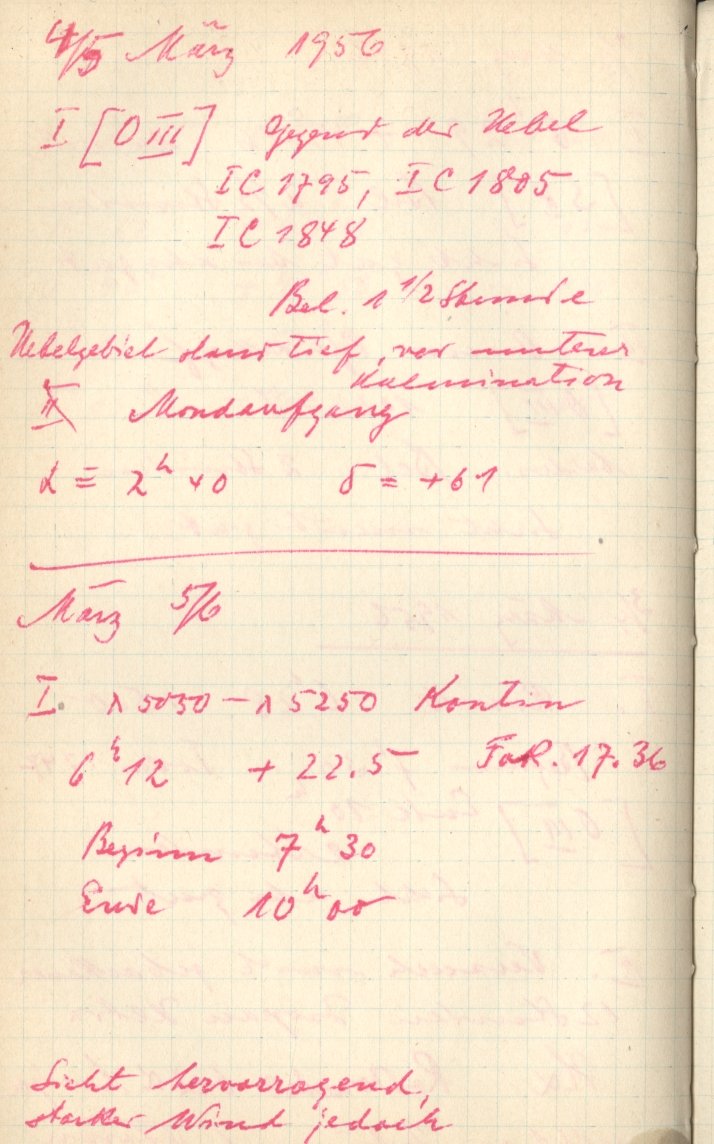 4/5 März 1956
I [O III] Gegend der Nebel
IC 1795, IC 1805
IC 1848
Bel. 1 1/2 Stunde
Nebelgebiet stand tief, vor unterer
Kulmination
II Mondaufgang
α = 2h 40 δ = +61
März 5/6
I. λ 5030 – λ 5250 Kontin
6h 12 + 22.5 17.36
Beginn 7h 30
Ende 10h 00
Sicht hervorragend,
starker Wind jedoch